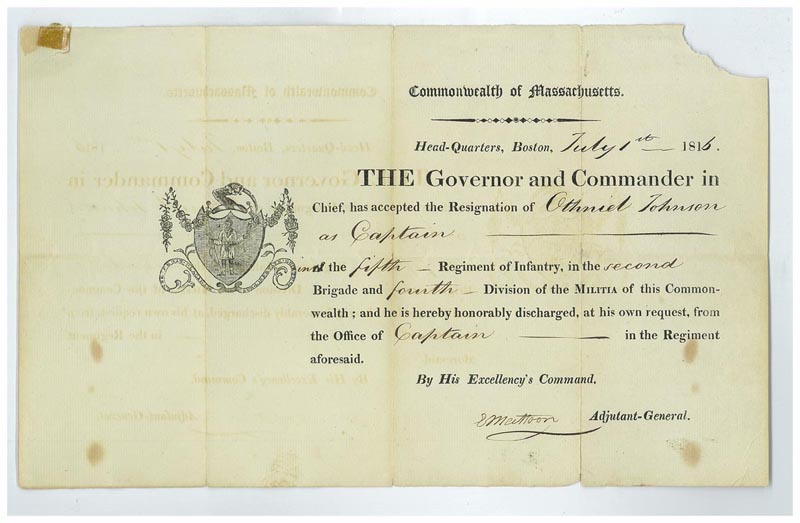 Commonwealth of Massachusetts.
Head-Quarters, Boston, July 1st 1816.
THE Governor and Commander in
Chief, has accepted the Resignation of Othniel Johnson
as Captain
in the fifth Regiment of Infantry, in the second
Brigade and fourth Division of the MILITIA of this Common-
wealth; and he is hereby honorably discharged, at his own request, from
the Office of Captain in the Regiment
aforesaid.
By His Excellency's Command,
E Mattoon Adjutant-General.